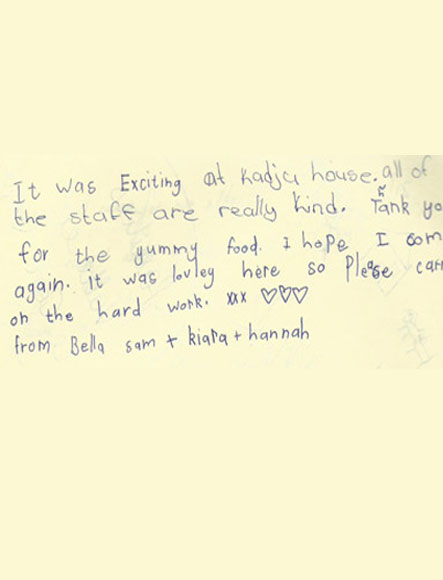 It was Exciting at kadja house. all of
the staff are really kind. Thank yo
for the yummy food. I hope I com
again. it was lovley here so Please carr
on the hard work. xxx ♡♡♡
from Bella sam + kiara + hannah